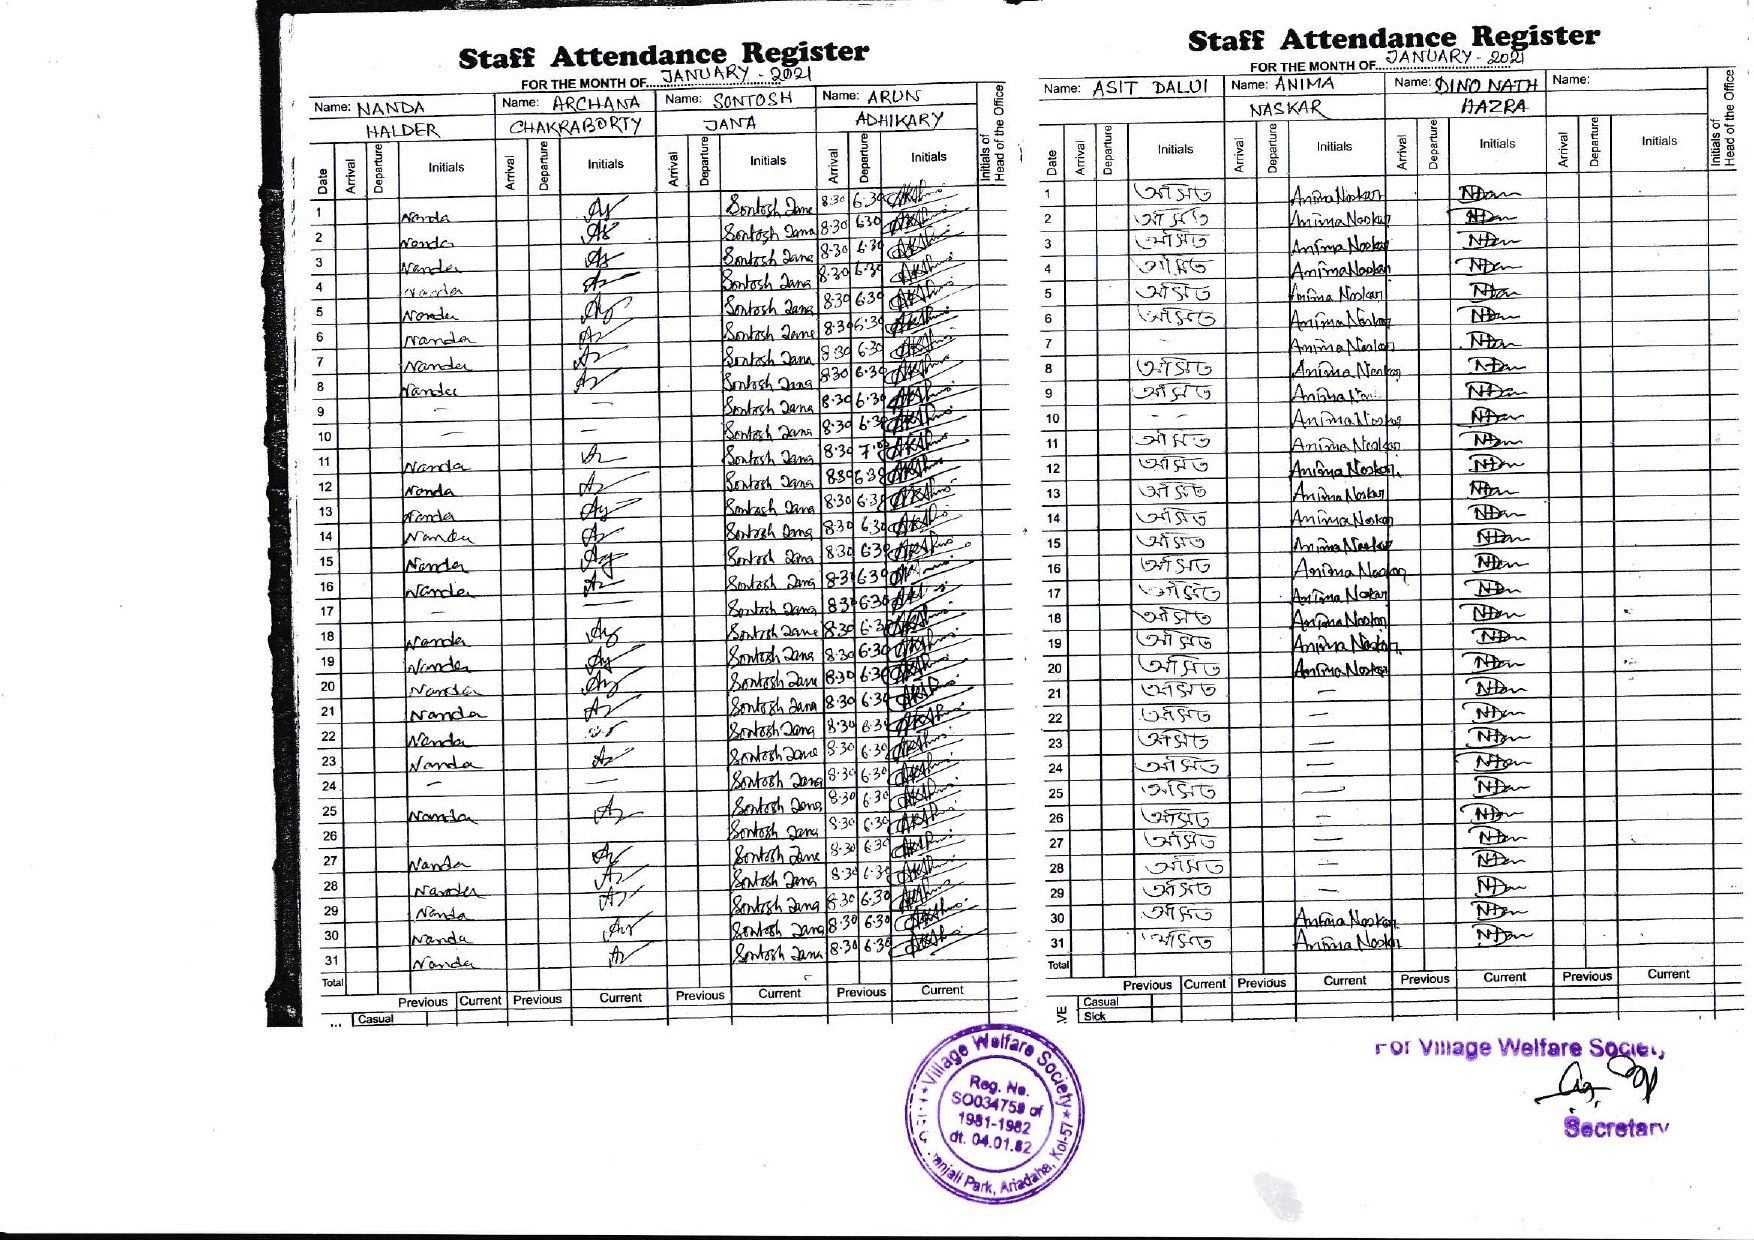 Staff Attendance Register
FOR THE MONTH OF JANUARY - 2021
Name: NANDA HALDER Name: ARCHANA CHAKRABORTY Name: SONTOSH JANA Name: ARUN ADHIKARY Initials of Head of the Office
Date Arrival Departure Initials Arrival Departure Initials Arrival Departure Initials Arrival Departure Initials
1 Nanda Sontosh Jana 8:30 6:30
2 Nanda Sontosh Jana 8:30 6:30
3 Nanda Sontosh Jana 8:30 6:30
4 Nanda Sontosh Jana 8:30 6:30
5 Nanda Sontosh Jana 8:30 6:30
6 Nanda Sontosh Jana 8:30 6:30
7 Nanda Sontosh Jana 8:30 6:30
8 Nanda Sontosh Jana 8:30 6:30
9 — — Sontosh Jana 8:30 6:30
10 — — Sontosh Jana 8:30 6:30
11 Nanda Sontosh Jana 8:30
12 Nanda Sontosh Jana 8:30 6:30
13 Nanda Sontosh Jana 8:30 6:30
14 Nanda Sontosh Jana 8:30 6:30
15 Nanda Sontosh Jana 8:30 6:30
16 Nanda Sontosh Jana 8:30 6:30
17 — — Sontosh Jana 8:30 6:30
18 Nanda Sontosh Jana 8:30 6:30
19 Nanda Sontosh Jana 8:30 6:30
20 Nanda Sontosh Jana 8:30 6:30
21 Nanda Sontosh Jana 8:30 6:30
22 Nanda Sontosh Jana 8:30 6:30
23 Nanda Sontosh Jana 8:30 6:30
24 — — Sontosh Jana 8:30 6:30
25 Nanda Sontosh Jana 8:30 6:30
26 Sontosh Jana 8:30 6:30
27 Nanda Sontosh Jana 8:30 6:30
28 Nanda Sontosh Jana 8:30 6:30
29 Nanda Sontosh Jana 8:30 6:30
30 Nanda Sontosh Jana 8:30 6:30
31 Nanda Sontosh Jana 8:30 6:30
Total
Previous Current Previous Current Previous Current Previous Current
Casual
Staff Attendance Register
FOR THE MONTH OF JANUARY - 2021
Name: ASIT DALUI Name: ANIMA NASKAR Name: DINO NATH HAZRA Name: Initials of Head of the Office
Date Arrival Departure Initials Arrival Departure Initials Arrival Departure Initials Arrival Departure Initials
1 অসিত Anima Naskar
2 অসিত Anima Naskar
3 অসিত Anima Naskar
4 অসিত Anima Naskar
5 অসিত Anima Naskar
6 অসিত Anima Naskar
7 - Anima Naskar
8 অসিত Anima Naskar
9 অসিত Anima
10 - - Anima Naskar
11 অসিত Anima Naskar
12 অসিত Anima Naskar
13 অসিত Anima Naskar
14 অসিত Anima Naskar
15 অসিত Anima Naskar
16 অসিত Anima Naskar
17 অসিত Anima Naskar
18 অসিত Anima Naskar
19 অসিত Anima Naskar
20 অসিত Anima Naskar
21 অসিত —
22 অসিত —
23 অসিত —
24 অসিত —
25 অসিত —
26 অসিত —
27 অসিত —
28 অসিত —
29 অসিত —
30 অসিত Anima Naskar
31 অসিত Anima Naskar
Total
Previous Current Previous Current Previous Current Previous Current
Casual
Sick
Village Welfare Society
Reg. No.
SO034759 of
1981-1982
dt. 04.01.82
Park, Ariadaha, Kol-57
For Village Welfare Society
Secretary